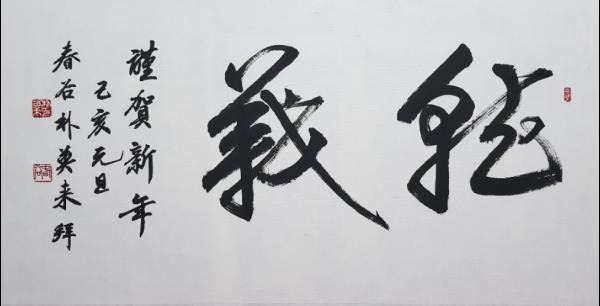 義
謹賀新年
己亥元旦
春谷朴英来拜